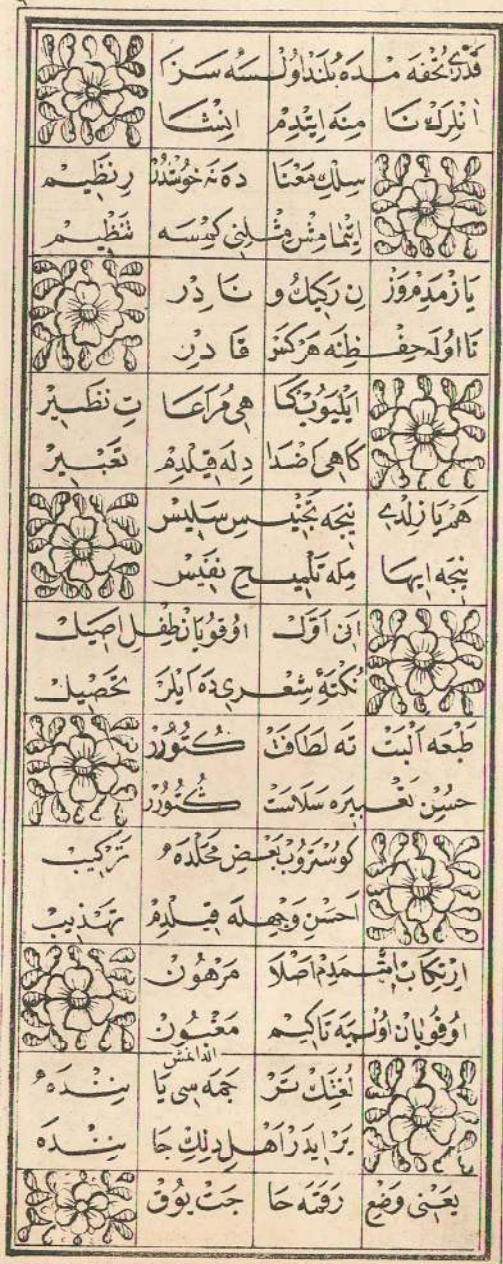 قَدْرِی تُحْفَه مدَه بُلَنْد اُولْسَه سَزَا
اَنْلَرِڭ نَامِنَه اِیتْدِمْ اِنْشَا
سِلْكِ مَعْنَادَه نَه خُوشْدُرْ بِرِنَظِیم
اِیتْمَامِشْ مِثْلِنِی كِمْسَه تَنْظِیم
یَازْمَدِمْ وَزْنِ رَكِیكُ و نَادِرْ
تَا اُولَه حِفْظِنَه هَرْكَسْ قَادِرْ
اَیْلَیُوبْ كَاهِی مُرَاعَاتِ نَظِیرْ
كَاهِی اَضْدَادِلَه قِیلْدِمْ تَعْبِیرْ
هَمْ یَازِلْدِی نِیجَه تَجْنِیسِ سَلِیسْ
نِیجَه اِیهَامِلَه تَلْمِیحِ نَفِیسْ
اَنِی اَوَّلْ اوُقُویَانْ طِفْلِ اَصِیلْ
نُكْتَهٔ شِعْرِی دَه اَیْلَرْ تَحْصِیلْ
طَبْعَه اَلْبَتَّه لَطَافَتْ كُتُورُرْ
حُسْنِ تَعْبِیرَه سَلَاسَتْ كُتُورُرْ
كُوسْتَرُوبْ بَعْضِ مَحَلْدَه تَرْكِیبْ
اَحْسَنِ وَجْهِلَه قِیلْدِمْ تَهْذِیبْ
اِرْتِكَابْ اِتْمَدِمْ اَصْلَا مَرْهُونْ
اوُقُویَانْ اُولْمَیَه تَاكِیمْ مَغْبُونْ
لُغَتِڭ تَرْجَمَه سِی یَانِنْدَه
یَرْ اِیدَرْ اَهْلِ دِلِڭ جَانِنْدَه
یَعْنِی وَضْعِ رَقَمَه حَاجَتْ یُوقْ